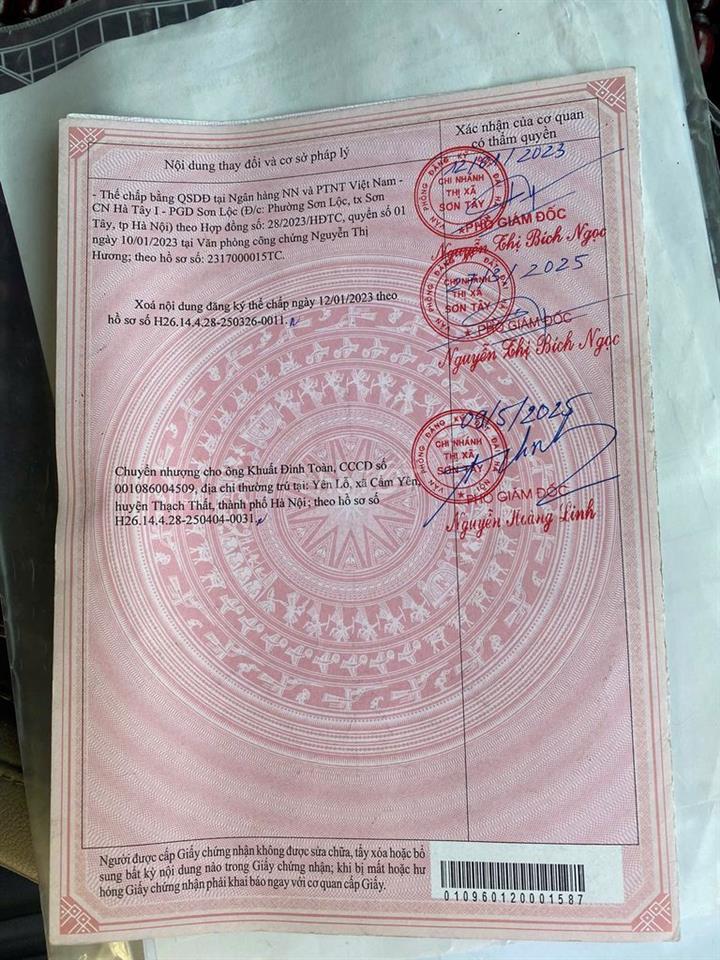 Nội dung thay đổi và cơ sở pháp lý
Xác nhận của cơ quan
có thẩm quyền
- Thế chấp bằng QSDĐ tại Ngân hàng NN và PTNT Việt Nam -
CN Hà Tây I - PGD Sơn Lộc (Đ/c: Phường Sơn Lộc, tx Sơn
Tây, tp Hà Nội) theo Hợp đồng số: 28/2023/HĐTC, quyển số 01
ngày 10/01/2023 tại Văn phòng công chứng Nguyễn Thị
Hương; theo hồ sơ số: 2317000015TC.
12/01/2023
VĂN PHÒNG ĐĂNG KÝ ĐẤT ĐAI HÀ NỘI
CHI NHÁNH
THỊ XÃ
SƠN TÂY
PHÓ GIÁM ĐỐC
Nguyễn Thị Bích Ngọc
Xoá nội dung đăng ký thế chấp ngày 12/01/2023 theo
hồ sơ số H26.14.4.28-250326-0011.
27/3/2025
VĂN PHÒNG ĐĂNG KÝ ĐẤT ĐAI HÀ NỘI
CHI NHÁNH
THỊ XÃ
SƠN TÂY
PHÓ GIÁM ĐỐC
Nguyễn Thị Bích Ngọc
Chuyển nhượng cho ông Khuất Đình Toàn, CCCD số
001086004509, địa chỉ thường trú tại: Yên Lỗ, xã Cẩm Yên,
huyện Thạch Thất, thành phố Hà Nội; theo hồ sơ số
H26.14.4.28-250404-0031.
09/5/2025
VĂN PHÒNG ĐĂNG KÝ ĐẤT ĐAI HÀ NỘI
CHI NHÁNH
THỊ XÃ
SƠN TÂY
PHÓ GIÁM ĐỐC
Nguyễn Hoàng Linh
Người được cấp Giấy chứng nhận không được sửa chữa, tẩy xóa hoặc bổ
sung bất kỳ nội dung nào trong Giấy chứng nhận; khi bị mất hoặc hư
hỏng Giấy chứng nhận phải khai báo ngay với cơ quan cấp Giấy.
010960120001587